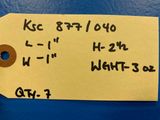 KSC 877/040
L-1" H-2½
W-1" WGHT-3 oz
QTY-7